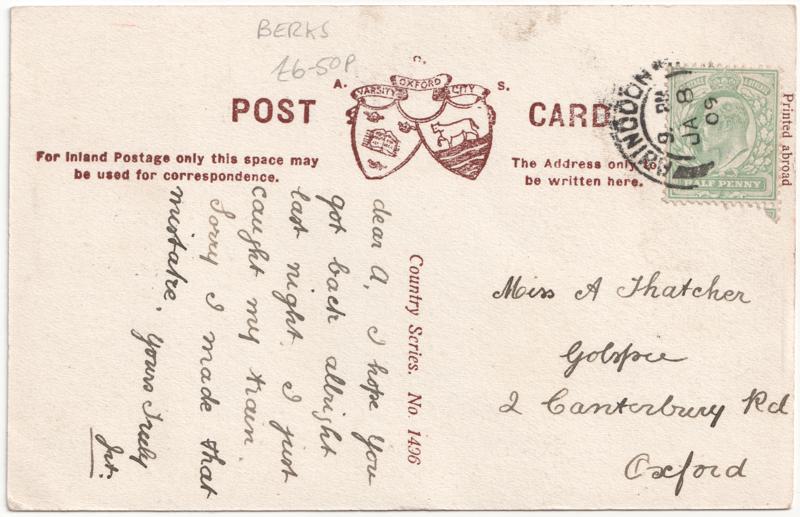 BERKS
£6-50P
A. C. S.
VARSITY OXFORD CITY
POST CARD
For Inland Postage only this space may
be used for correspondence.
The Address only to
be written here.
ABINGDON
9 PM
JA 8
09
HALF PENNY
Printed abroad
dear A, I hope you
got back allright
last night. I just
caught my train.
Sorry I made that
mistake. Yours Truly
Country Series. No. 1496
Miss A Thatcher
Golspie
2 Canterbury Rd
Oxford